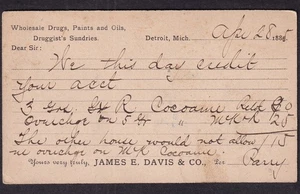 Wholesale Drugs, Paints and Oils,
Druggist's Sundries.
Detroit, Mich. Apr 28 188
Dear Sir:
We this day credit
your acct
3 R. Cocoaine
voucher on 5 " 25
The other house would not allow 1 15
voucher on Cocoaine
Yours very truly, JAMES E. DAVIS & CO., Per